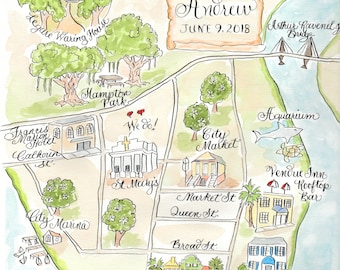 Andrew
JUNE 9, 2018
Arthur Ravenel Jr
Bridge
Waring House
Hampton
Park
Francis
Marion
Hotel
Calhoun
St
We do!
St. Marys
City
Market
Aquarium
Vendue Inn
Rooftop
Bar
Market St
Queen St
Broad St
City
Marina